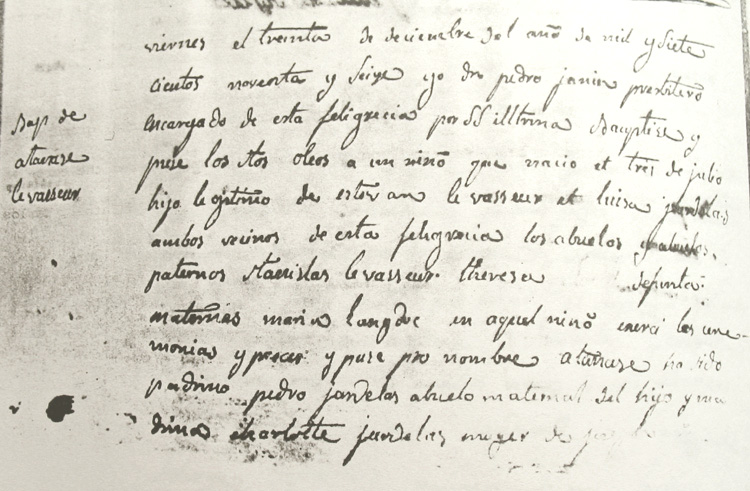 viernes el treinta de deciembre del año de mil y siete
cientos noventa y seiye yo dn pedro janin presbitero
Bap de
encargado de esta feligrecia por SS illtrina Bauptise y
atanase
puse los stos oleos a un niño que nacio el tres de julio
le vasseur
hijo legitimo de estevan le vasseur et luisa jardelas
ambos vecinos de esta feligrecia los abuelos
paternos stanislas le vasseur theresa defunta
maternas maria Langdoc en aquel niño exerci las cere-
monias y preces y puse pro nombre atanase ha sido
padrino pedro jardelas abuelo maternal del hijo y ma
drina charlotte jardelas muger de